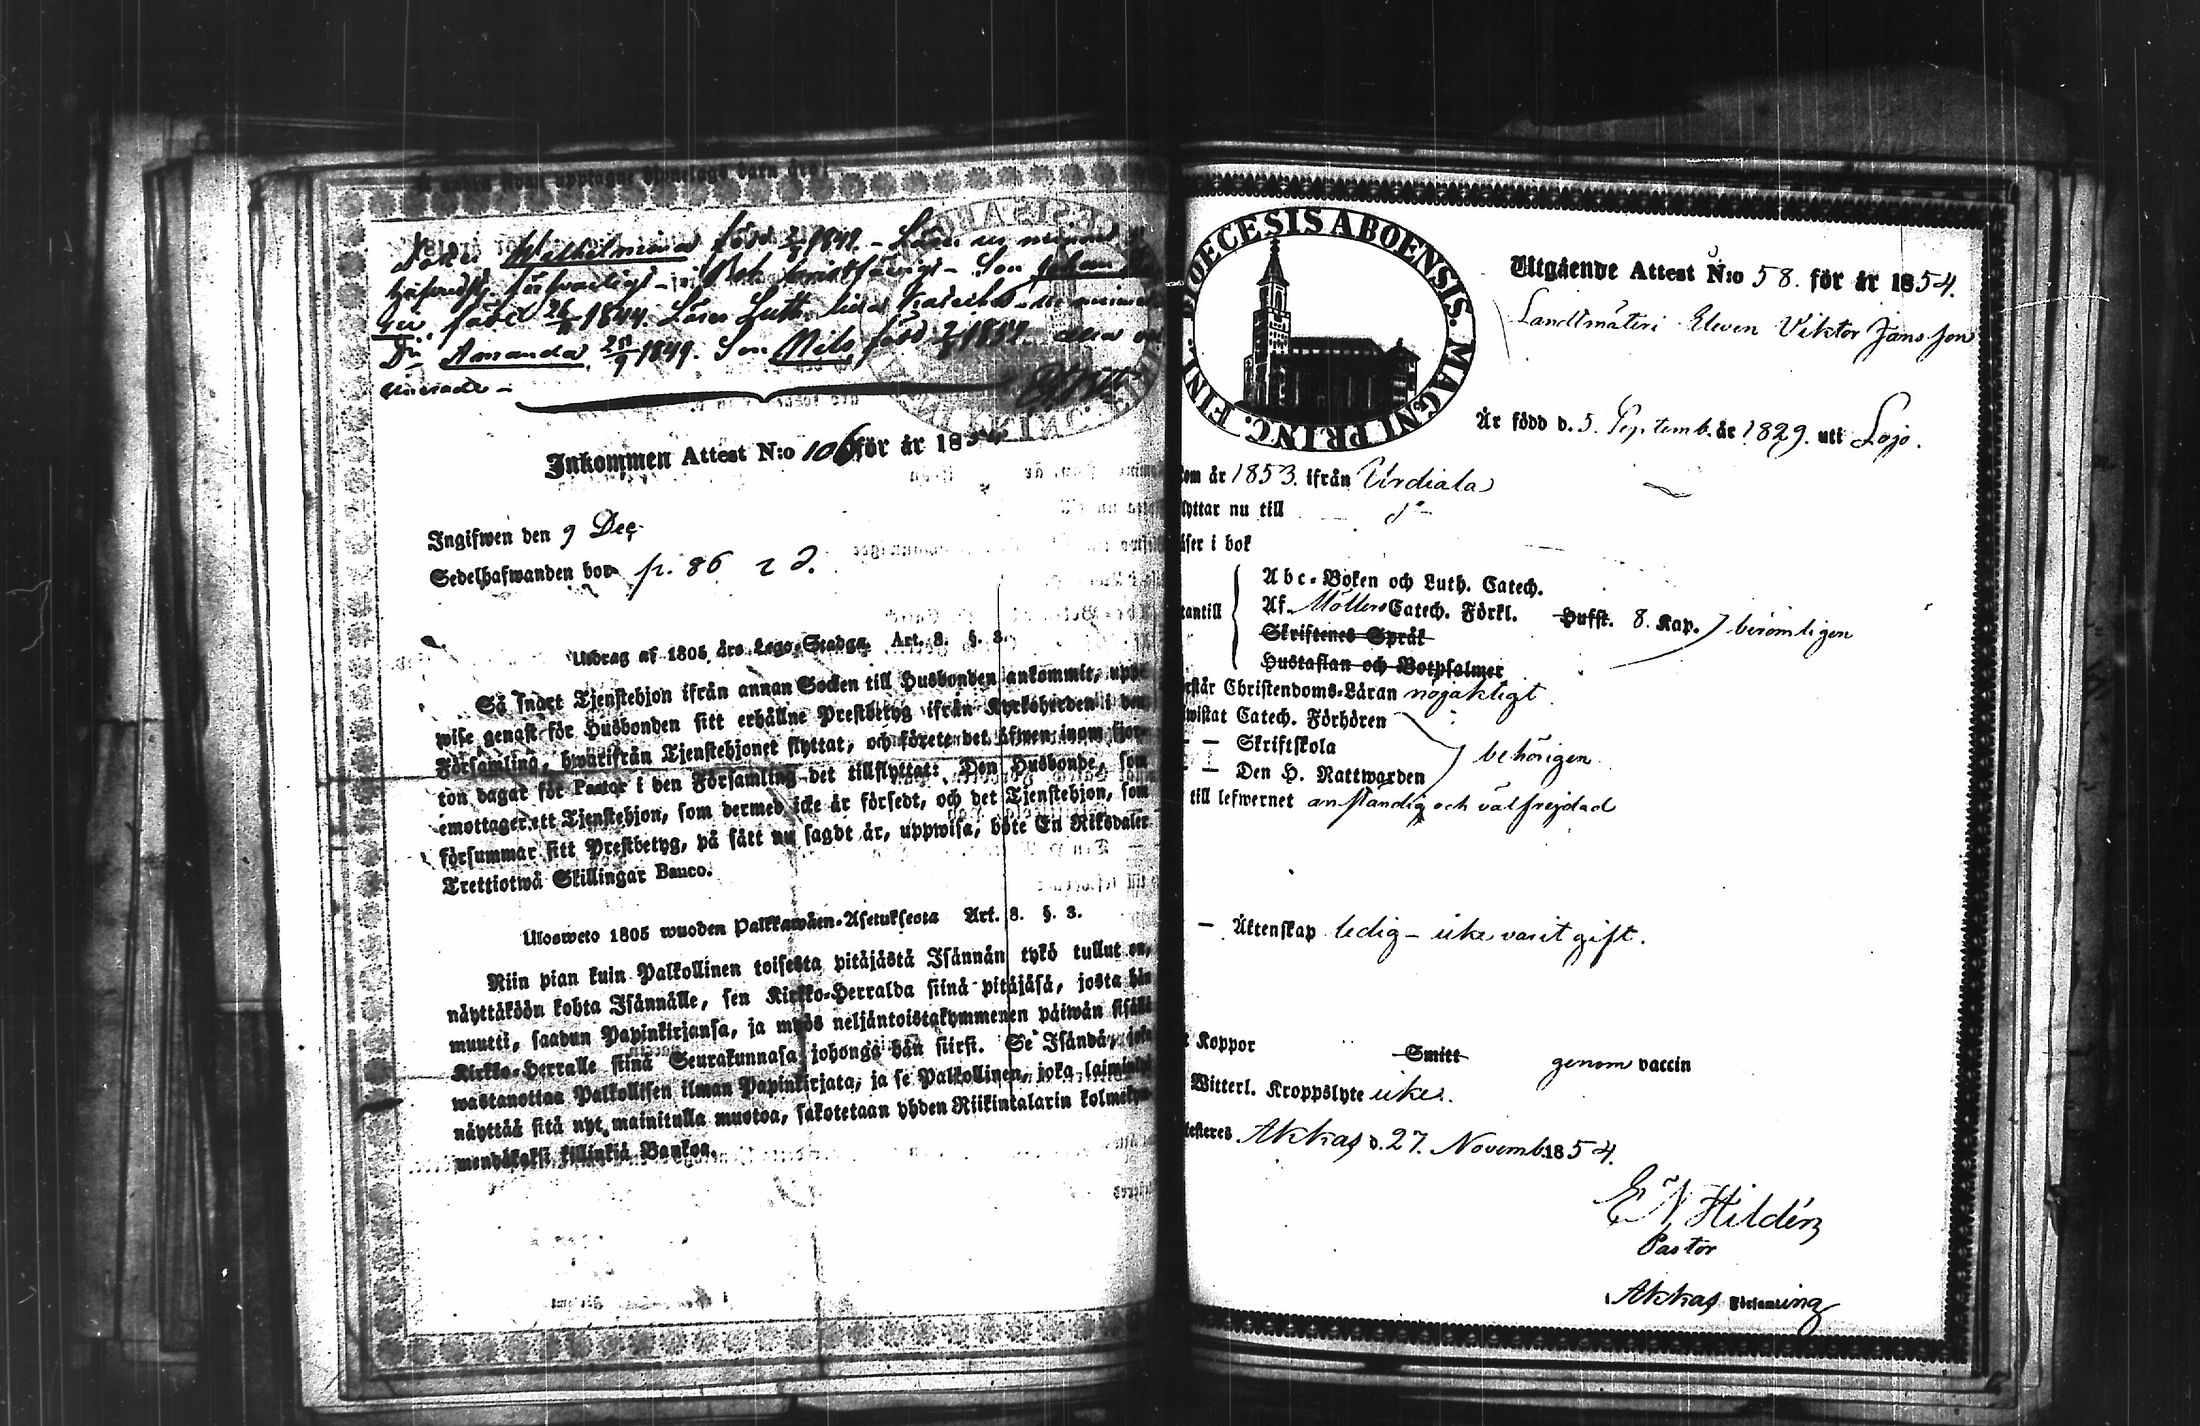 Wilhelmina född 1849. - Läser
Son Johan
född 26/8 1844. Läser Luth.
Amanda 1849. Son Nils född
Inkommen Attest N:o 106 för år 1854
Ingifwen den 9 Dec.
Sedelhafwanden bor p. 86
Utdrag af 1805 års Lego-Stadga, Art. 8. §. 3.
Så snart Tjenstehjon ifrån annan Socken till Husbonden ankommit, upp-
wise genast för Husbonden sitt erhållne Prestbetyg ifrån Kyrkoherden i den
Församling, hwarifrån Tjenstehjonet flyttat, och förete det äfwen inom fjor-
ton dagar för Pastor i den Församling det tillflyttat: Den Husbonde, som
emottager ett Tjenstehjon, som dermed icke är försedt, och det Tjenstehjon, som
försummar sitt Prestbetyg, på sätt nu sagdt är, uppwisa, böte En Riksdaler
Trettiotwå Skillingar Banco.
Ulosweto 1805 wuoden Palkkawäen-Asetuksesta Art. 8. §. 3.
Niin pian kuin Palkollinen toisesta pitäjästä Isännän tykö tullut on,
näyttäköön kohta Isännälle, sen Kirkko-Herralda siinä pitäjäsä, josta hän
muutti, saadun Papinkirjansa, ja myös neljäntoistakymmenen päiwän sisällä
Kirkko-Herralle siinä Seurakunnasa johonga hän siirsi. Se Isändä, joka
wastanottaa Palkollisen ilman Papinkirjata, ja se Palkollinen, joka laiminlyö
näyttää sitä nyt mainitulla muotoa, sakotetaan yhden Riikintalarin kolmekym-
mendäkaksi killinkiä Bankoa.
DIOECESIS ABOENSIS. MAGNI PRINC. FINL.
Utgående Attest N:o 58. för år 1854.
Landtmäteri Eleven Viktor Jansson
Är född d. 5. Septemb. år 1829. utt Lojo.
om år 1853. ifrån Urdiala
lyttar nu till
äser i bok
Abc-Boken och Luth. Catech.
tantill Af Möllers Catech. Förkl. Hufst. 8. Kap. berömligen
Skriftenes Språk
Hustaflan och Botpsalmer
rstår Christendoms-Läran nöjaktigt
wistat Catech. Förhören
— Skriftskola behörigen
— Den H. Nattwarden
till lefwernet anständig och välfrejdad
— Äktenskap ledig - icke varit gift.
t Koppor Smitt genom vaccin
Witterl. Kroppslyte icke.
testeres Akkas d. 27. Novemb. 1854.
E N Hildén
Pastor
Akkas Församling